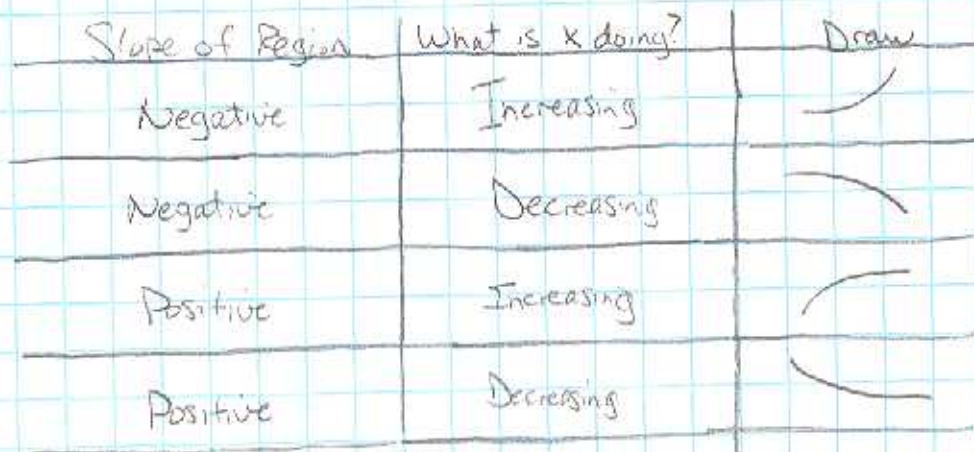 Slope of Region What is x doing? Draw
Negative Increasing
Negative Decreasing
Positive Increasing
Positive Decreasing